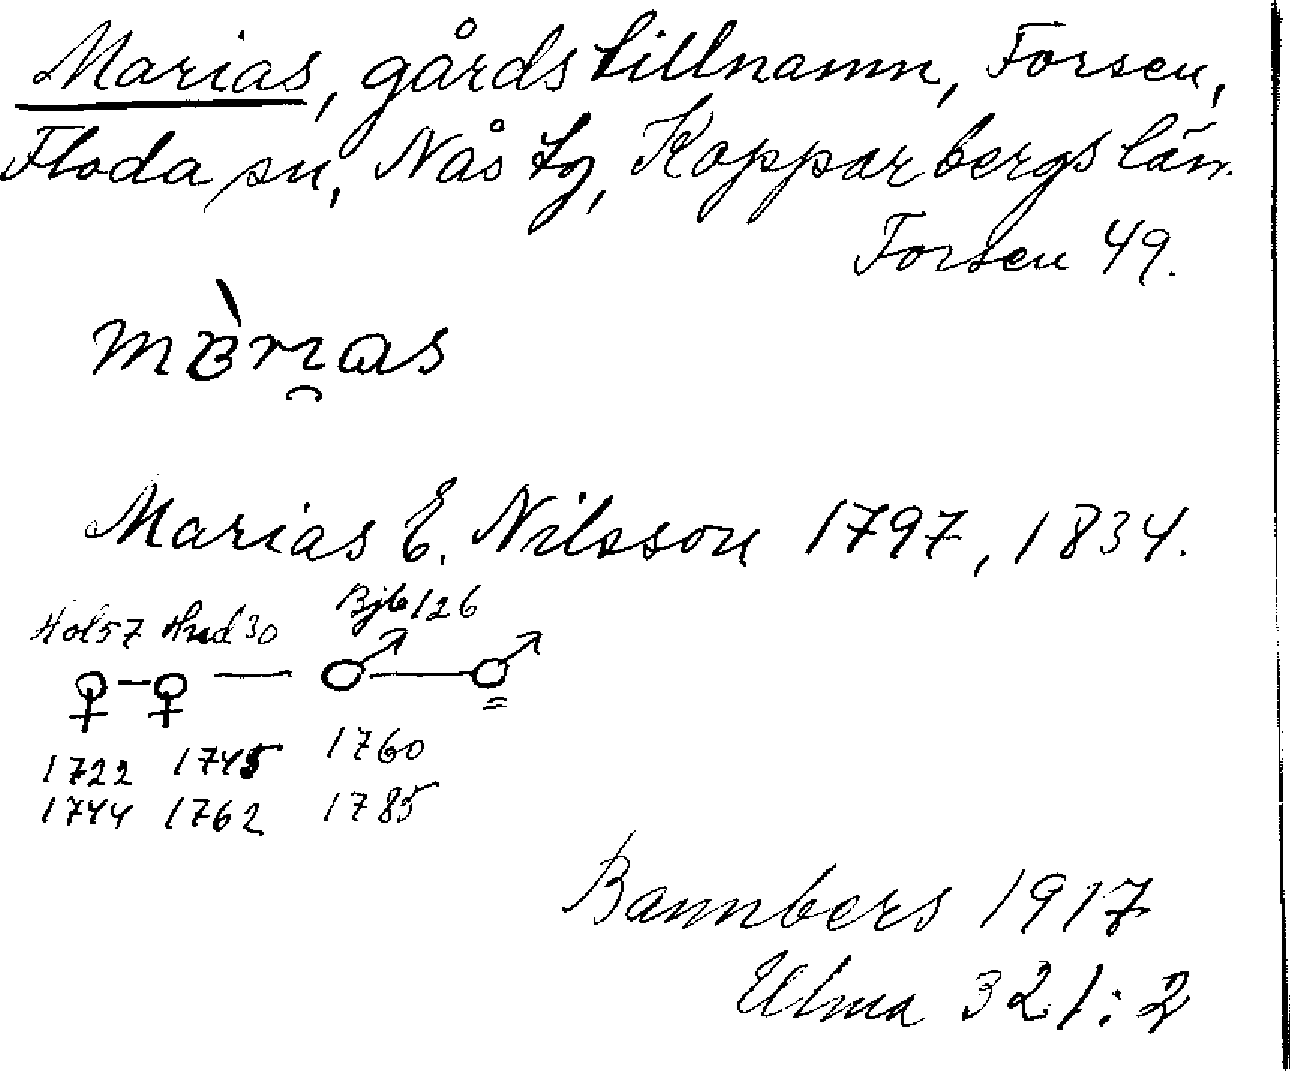 Marias, gårdstillnamn, Forsen,
Floda sn, Nås tg, Kopparbergs län.
Forsen 49.
Marias E. Nilsson 1797, 1834.
Hol57 Hud30 Bjb126
♀–♀ — ♂ — ♂
1722 1745 1760
1744 1762 1785
Bannbers 1917
Ulma 321:2